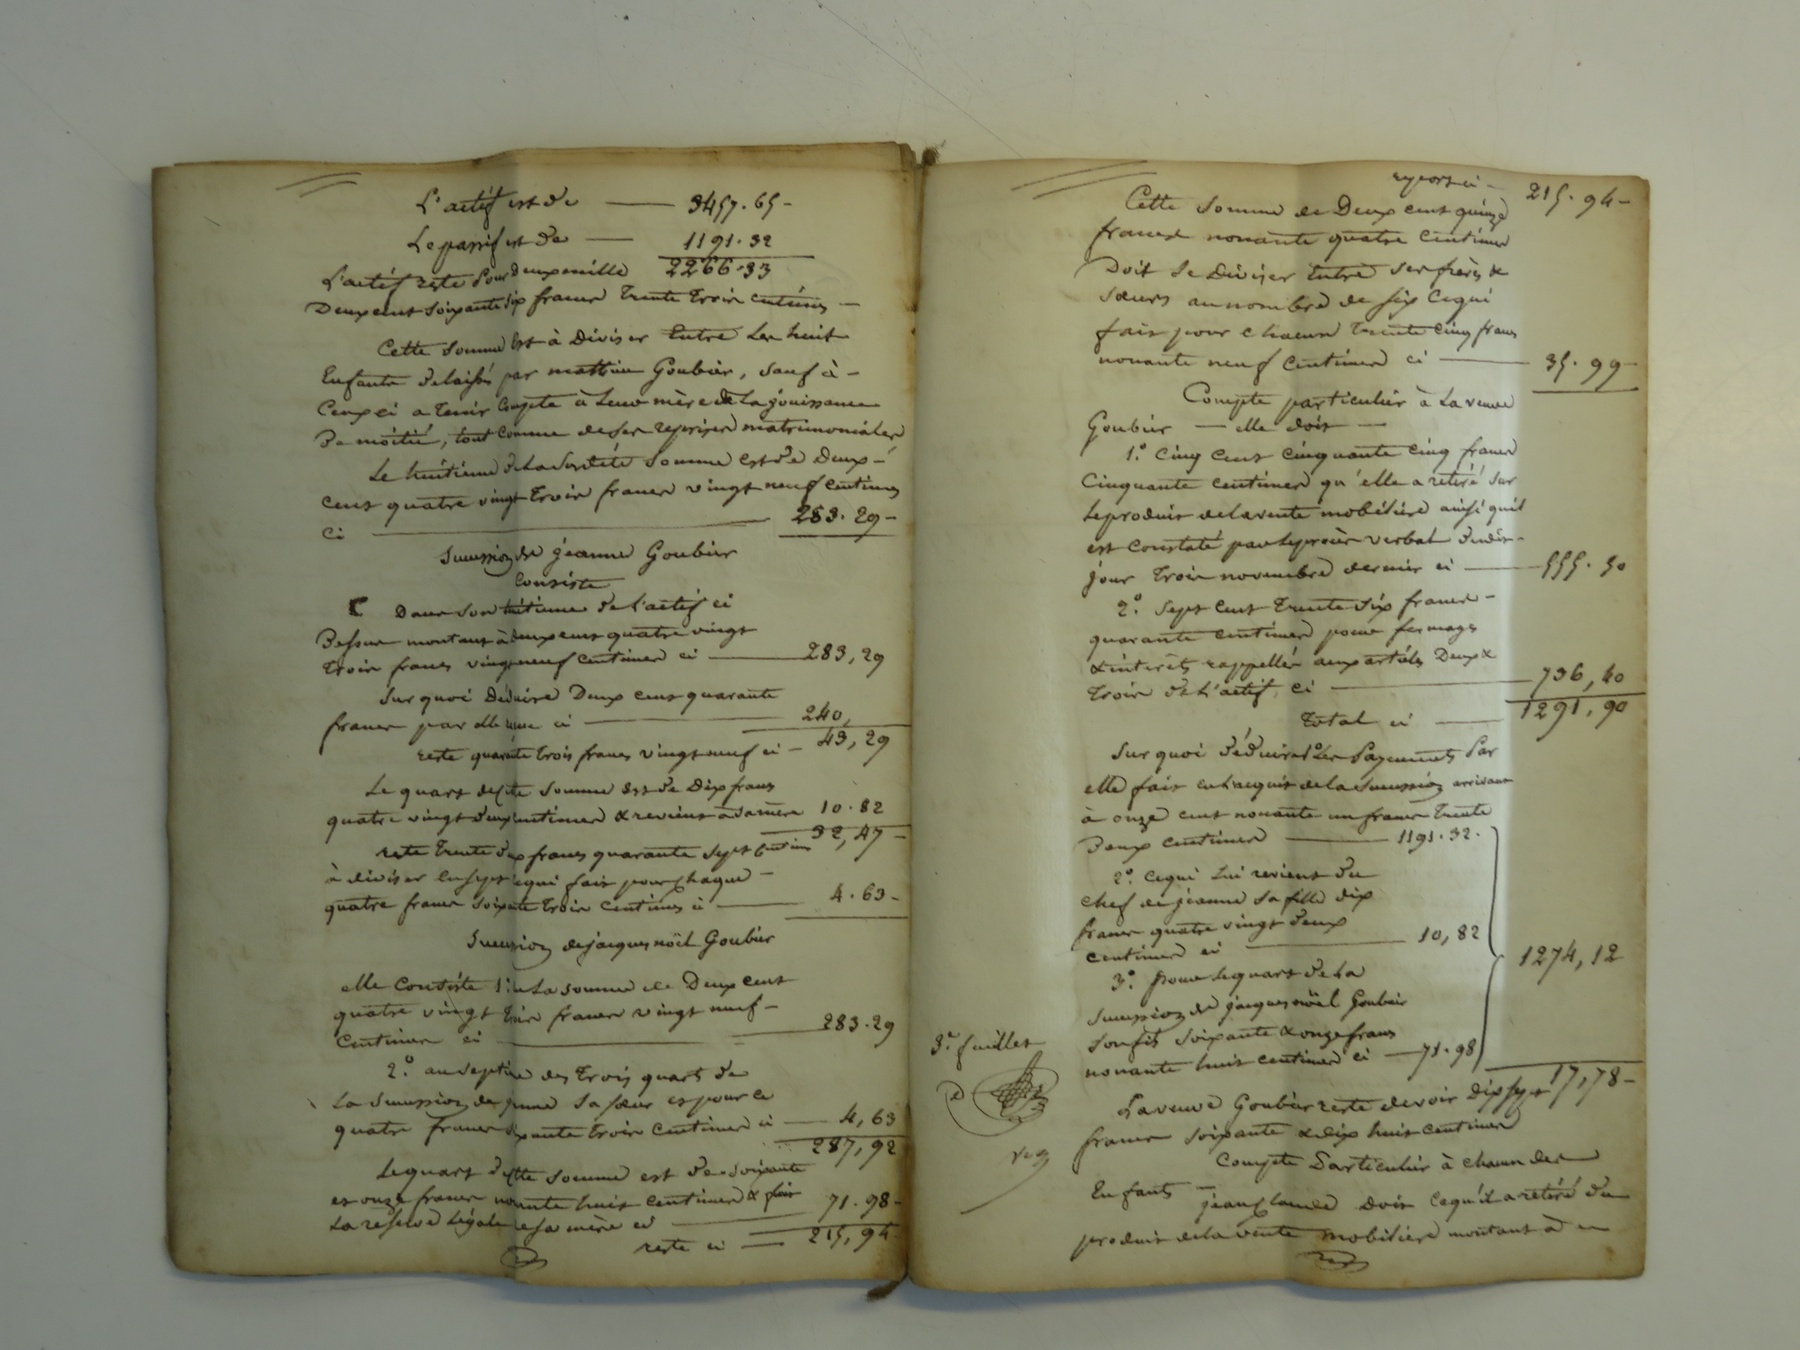 L'actif est de — 3457.65 -
Le passif est de — 1191.32
L'actif reste pour deux mille 2266.33
Deux cent soixante six francs trente trois centimes —
Cette somme est à diviser entre les huit
Enfants delaissés par mathieu Goubier, sauf à -
Ceux ci a tenir compte à leur mère de la jouissance
De moitié, tout comme de ses reprises matrimoniales
Le huitième de la susdite somme est de Deux -
cent quatre vingt trois francs vingt neuf centimes
ci — 283.29 -
Succession de jeanne Goubier
Consiste
Dans son huitième de l'actif ci
Dessus montant à deux cent quatre vingt
trois francs vingt neuf centimes ci — 283,29
Sur quoi Déduire Deux cent quarante
francs par elle ci — 240,
reste quarante trois francs vingt neuf ci - 43,29
Le quart de cette somme est de Dix francs
quatre vingt deux centimes & revient à sa mère 10.82
reste trente deux francs quarante sept centimes 32,47 -
à diviser en sept ce qui fait pour chaque -
quatre francs soixante trois centimes ci — 4.63 -
Succession de jacques noël Goubier
elle consiste 1° en La somme de Deux cent
quatre vingt trois francs vingt neuf -
Centimes ci — 283.29
2° au septième des trois quarts de
La succession de jeanne sa sœur et pour ce
quatre francs soixante trois centimes ci — 4,63
287,92
Le quart de cette somme est de soixante
et onze francs nonante huit centimes & fait
La réserve légale de sa mère ci — 71.98 -
reste ci — 215,94
report ci - 215.94 -
Cette somme de Deux cent quinze
francs nonante quatre centimes
Doit se Diviser Entre ses frères &
sœurs au nombre de six ce qui
fait pour chacun trente cinq francs
nonante neuf centimes ci — 35.99
Compte particulier à La veuve
Goubier — elle doit —
1° Cinq cent cinquante cinq francs
Cinquante centimes qu'elle a retiré sur
Le produit de la vente mobiliére ainsi qu'il
est constaté par le procès verbal du dit -
jour trois novembre dernier ci — 555.50
2° sept cent trente six francs -
quarante centimes pour fermages
& intérêts rappellés aux articles Deux &
trois de l'actif ci — 736,40
Total ci — 1291,90
Sur quoi déduire 1° Les Payements Par
elle fait en l'acquit de la Succession arrivant
à onze cent nonante un francs trente
Deux centimes — 1191.32.
2° Ce qui lui revient du
chef de jeanne sa fille dix
francs quatre vingt deux
centimes ci — 10,82
3° pour le quart de la
Succession de jacques noël Goubier
son fils soixante & onze francs
nonante huit centimes ci — 71.98
1274,12
17,78 -
La veuve Goubier reste devoir dix sept
francs soixante & dix huit centimes
Compte Particulier à chacun des
Enfants —
jean Claude doit ce qu'il a retiré du
produit de la vente mobiliére montant à
3e feuillet